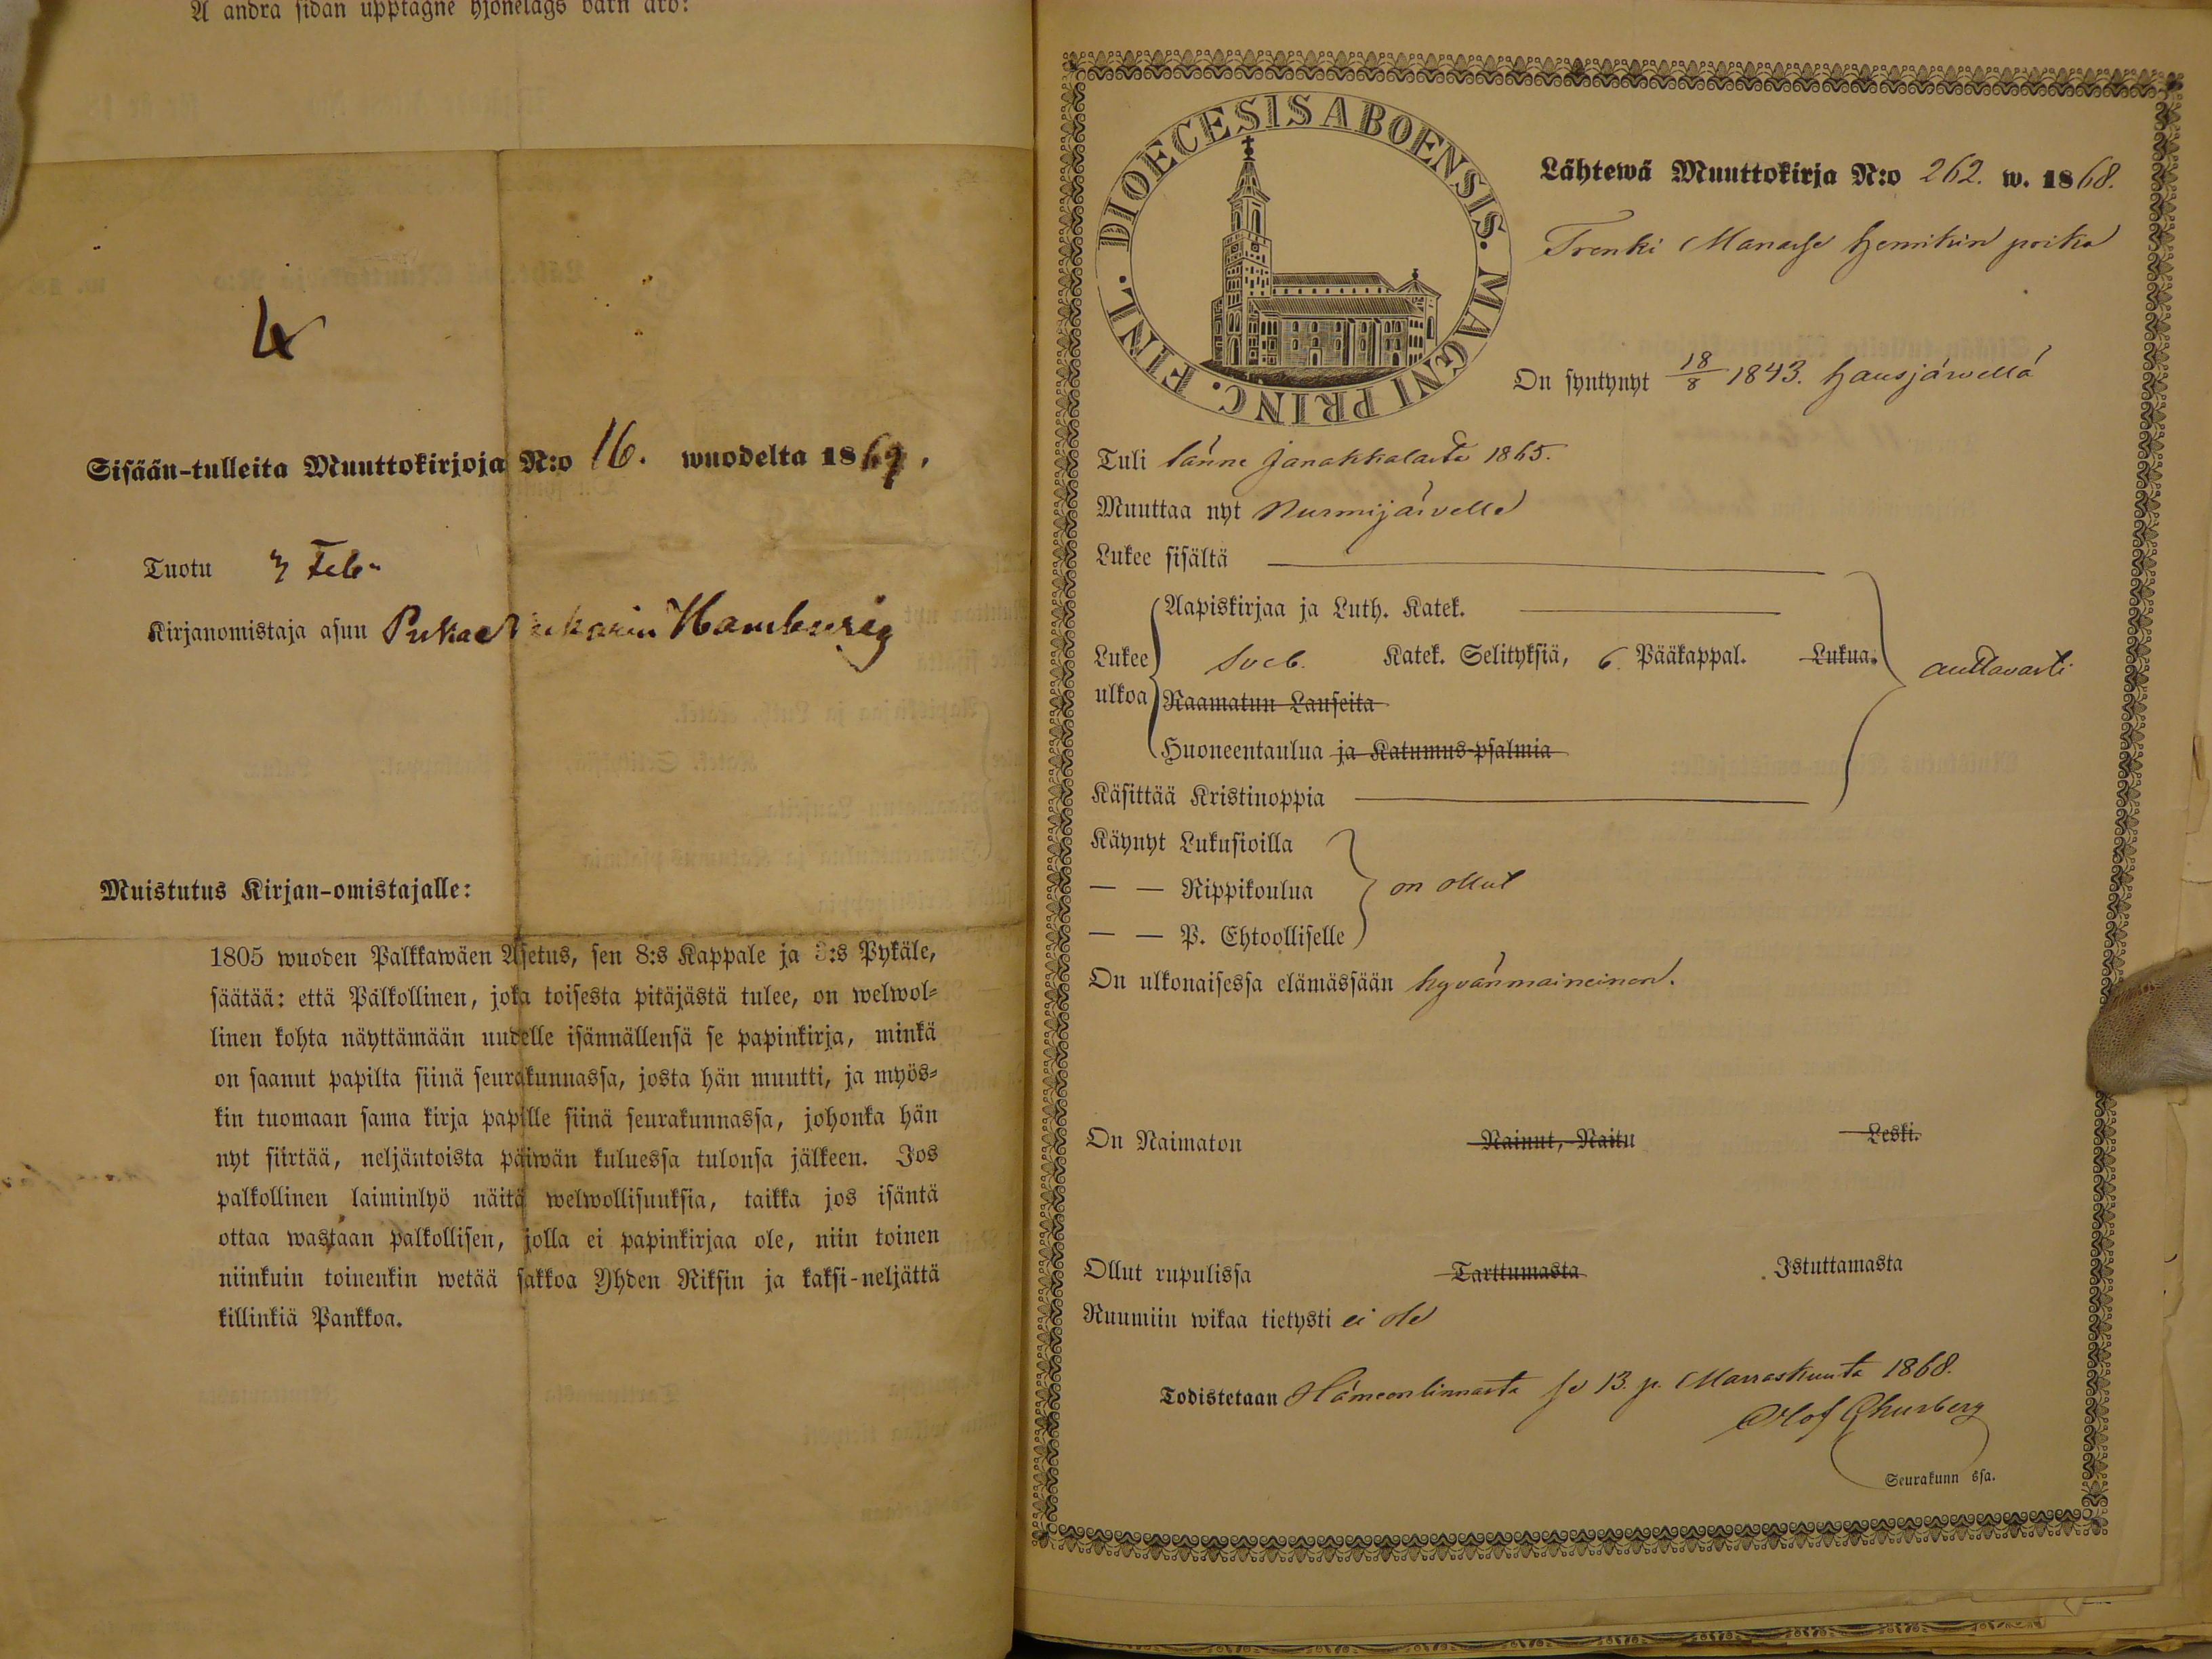 Å andra sidan upptagne hjonelags barn äro:
4
Sisään-tulleita Muuttokirjoja N:o 16. wuodelta 1869.
Tuotu 3 Feb
Kirjanomistaja asuu Hamburig
Muistutus Kirjan-omistajalle:
1805 wuoden Palkkawäen Asetus, sen 8:s Kappale ja 3:s Pykäle,
säätää: että Palkollinen, joka toisesta pitäjästä tulee, on welwol-
linen kohta näyttämään uudelle isännällensä se papinkirja, minkä
on saanut papilta siinä seurakunnassa, josta hän muutti, ja myös-
kin tuomaan sama kirja papille siinä seurakunnassa, johonka hän
nyt siirtää, neljäntoista päiwän kuluessa tulonsa jälkeen. Jos
palkollinen laiminlyö näitä welwollisuuksia, taikka jos isäntä
ottaa wastaan palkollisen, jolla ei papinkirjaa ole, niin toinen
niinkuin toinenkin wetää sakkoa Yhden Riksin ja kaksi-neljättä
killinkiä Pankkoa.
DIOECESIS ABOENSIS. MAGNI PRINC. FINL.
Lähtewä Muuttokirja N:o 262. w. 1868.
Trenki Manasse Henrikin poika
On syntynyt 18/8 1843. Hausjärvellä
Tuli tänne Janakkalasta 1865.
Muuttaa nyt Nurmijärvelle
Lukee sisältä
Lukee ulkoa
Aapiskirjaa ja Luth. Katek.
Sveb. Katek. Selityksiä, 6 Pääkappal. Lukua. auttavasti
Raamatun Lauseita
Huoneentaulua ja Katumus-psalmia
Käsittää Kristinoppia
Käynyt Lukusioilla
— — Rippikoulua on ollut
— — P. Ehtoolliselle
On ulkonaisessa elämässään hyvänmaineinen.
On Naimaton Nainut, Naitu Leski.
Ollut rupulissa Tarttumasta Istuttamasta
Ruumiin wikaa tietysti ei ole
Todistetaan Hämeenlinnasta se 13. p. Marraskuuta 1868.
Olof Churberg
Seurakunn ssa.